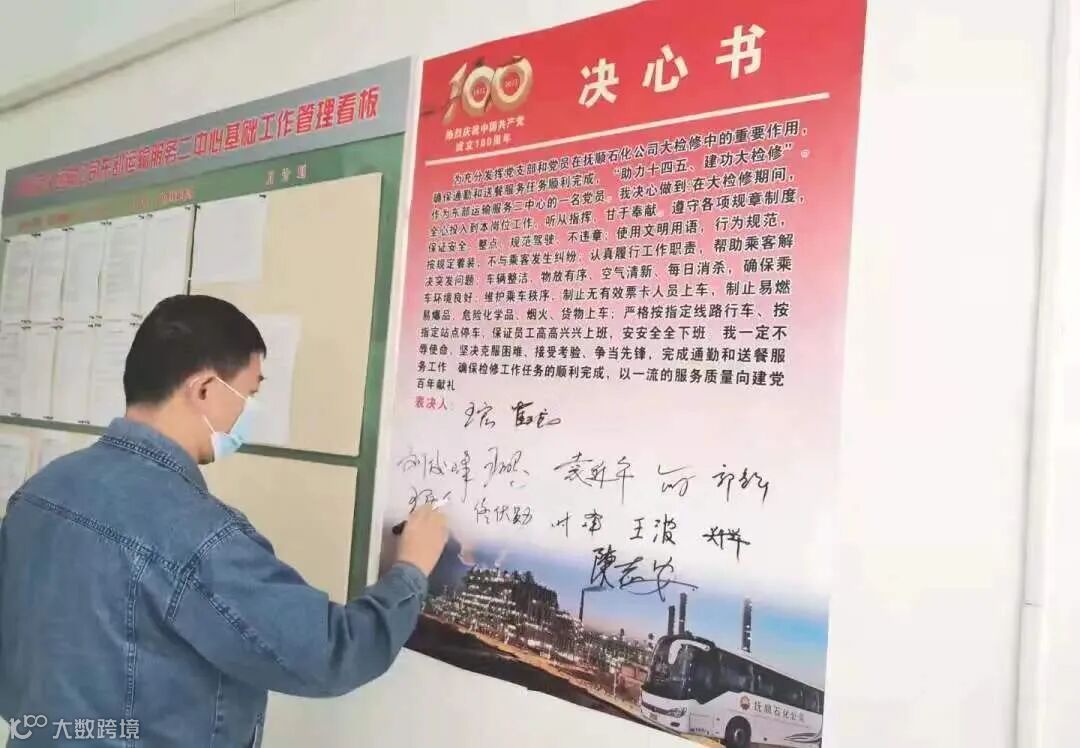 东部运输服务二中心基础工作管理看板
月计划
100
1921 2021
热烈庆祝中国共产党
成立100周年
决心书
为充分发挥党支部和党员在抚顺石化公司大检修中的重要作用，
确保通勤和送餐服务任务顺利完成，“助力十四五、建功大检修”。
作为东部运输服务二中心的一名党员。我决心做到 在大检修期间，
全心投入到本岗位工作，听从指挥，甘于奉献。遵守各项规章制度，
保证安全、整点、规范驾驶、不违章；使用文明用语，行为规范，
按规定着装，不与乘客发生纠纷，认真履行工作职责，帮助乘客解
决突发问题；车辆整洁、物放有序、空气清新、每日消杀，确保乘
车环境良好；维护乘车秩序，制止无有效票卡人员上车，制止易燃
易爆品、危险化学品、烟火、货物上车；严格按指定线路行车、按
指定站点停车，保证员工高高兴兴上班，安安全全下班。我一定不
辱使命，坚决克服困难、接受考验、争当先锋，完成通勤和送餐服
务工作 确保检修工作任务的顺利完成，以一流的服务质量向建党
百年献礼
表决人：王宏
袁延年
叶 王波
陳志安
抚顺石化公司
大数跨境